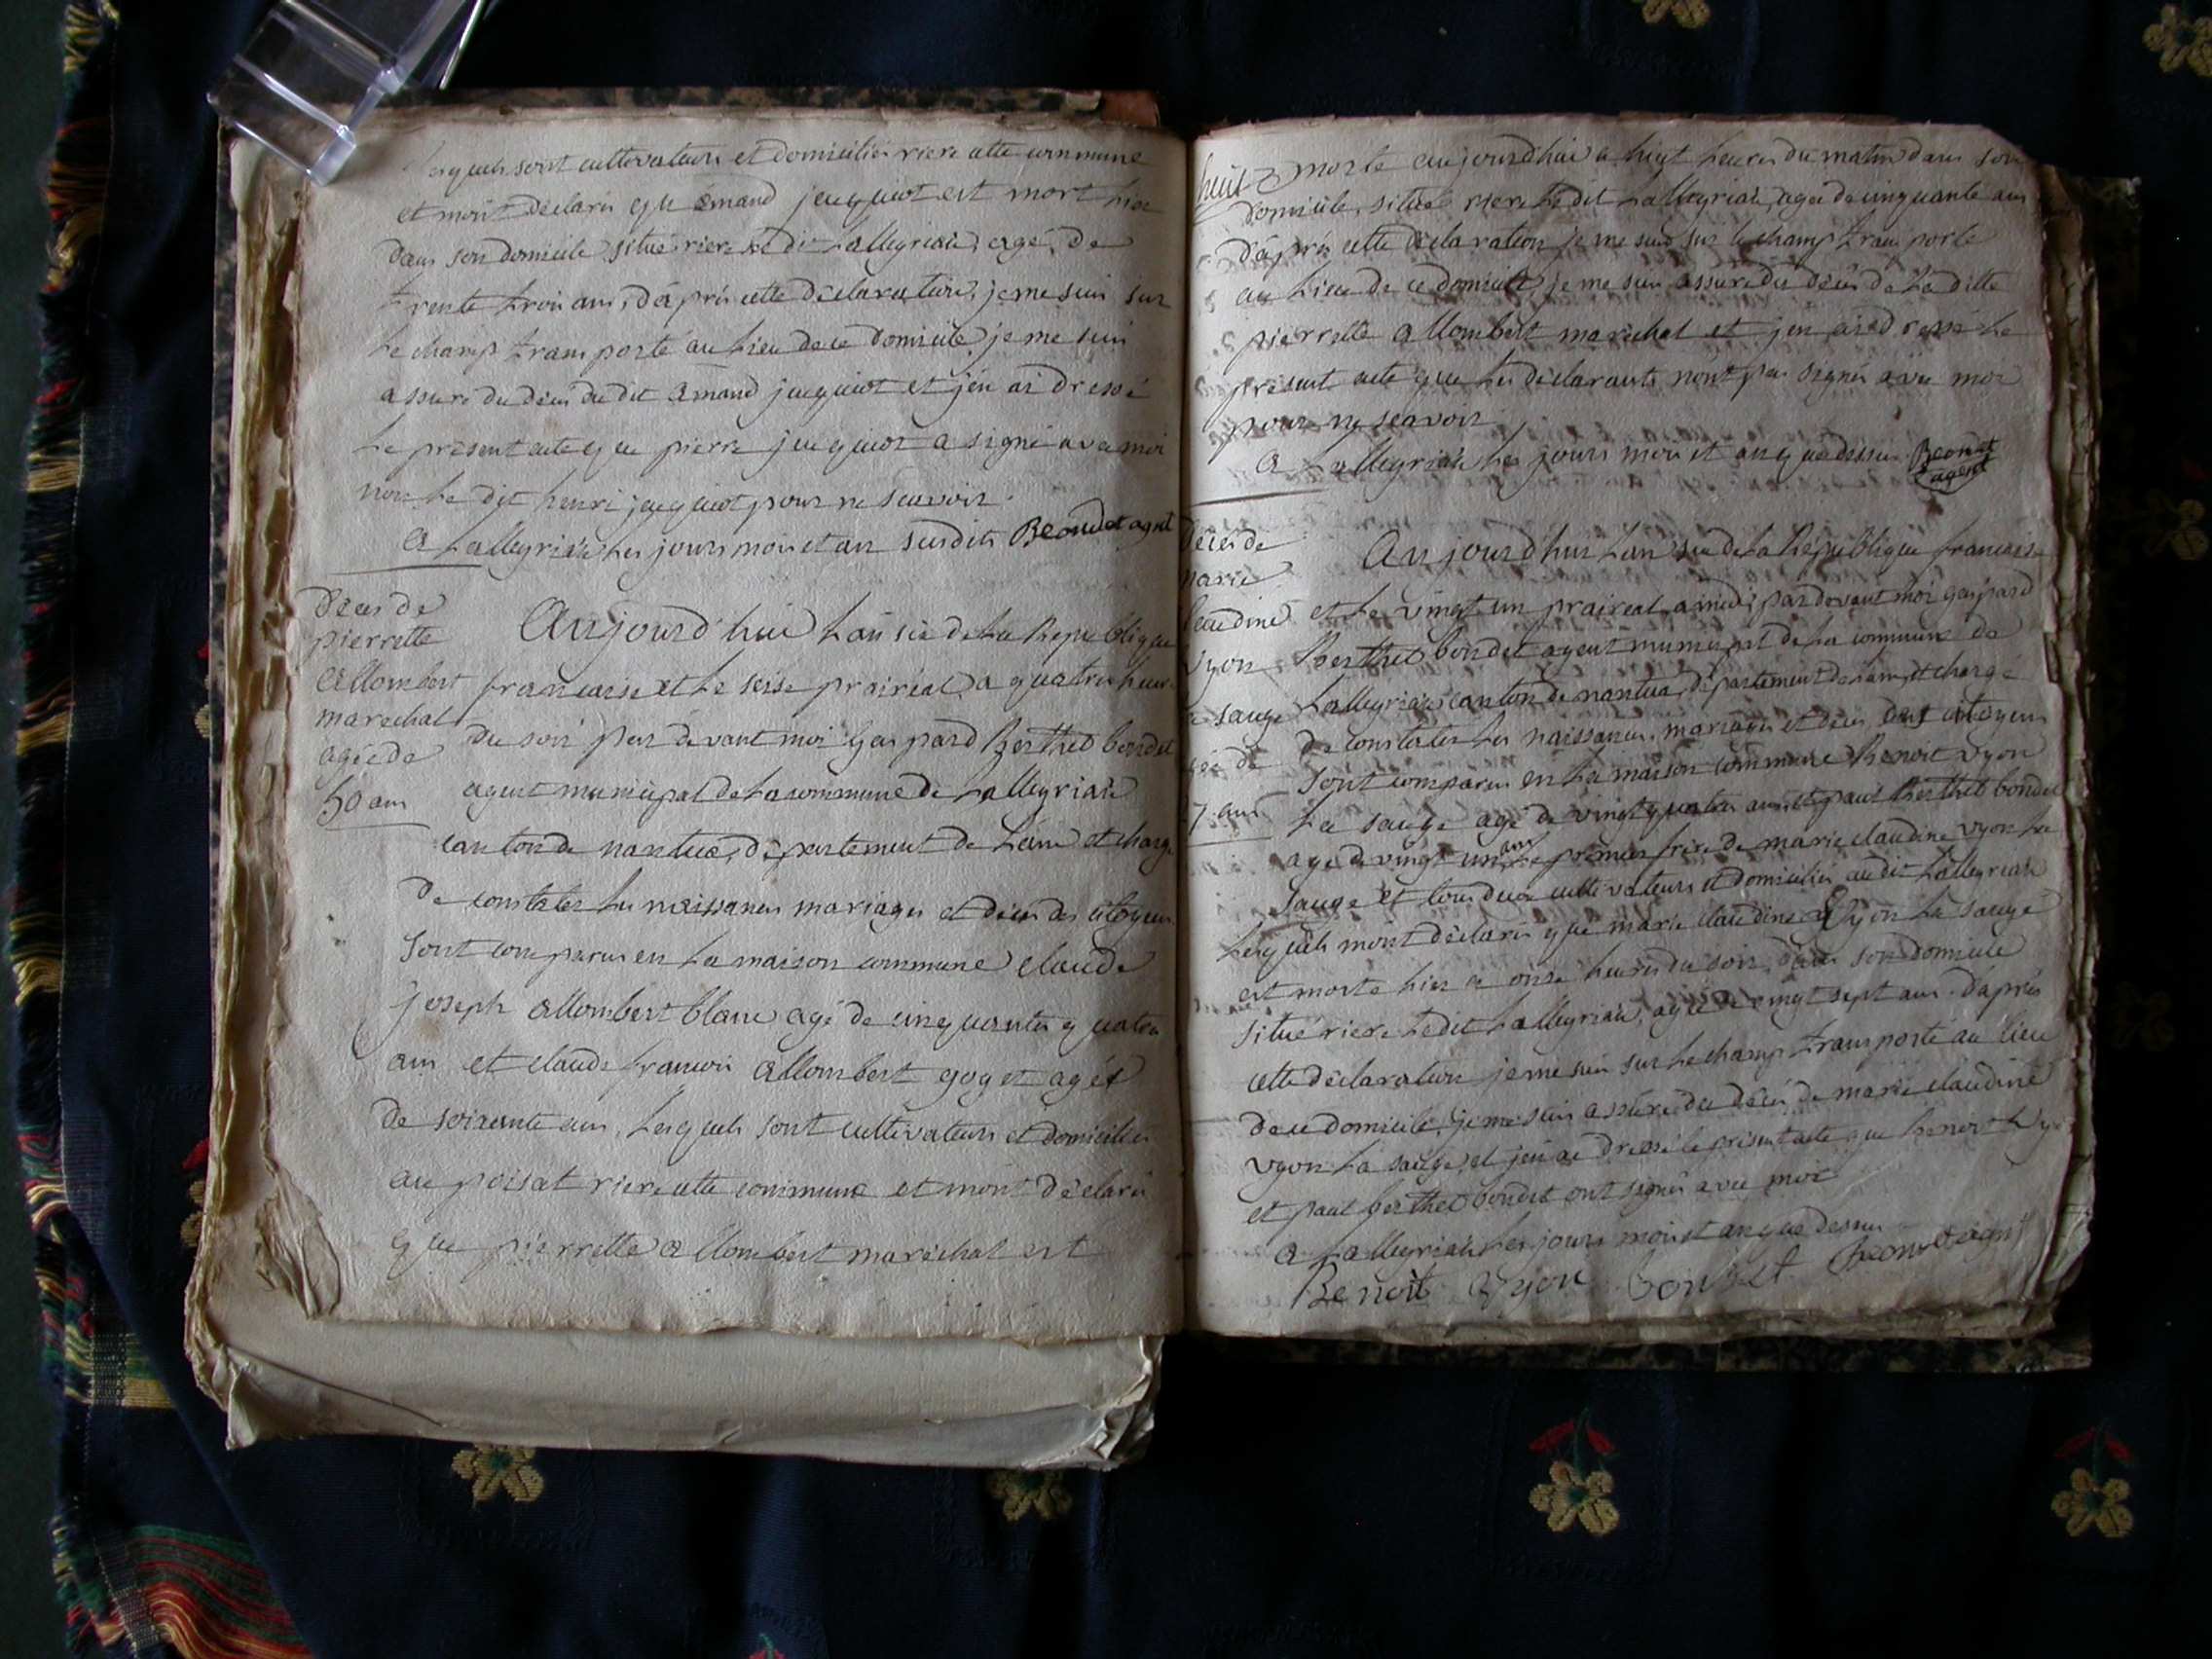 lesquels sont cultivateurs et domiciliés riere cette commune
et m'ont déclarés qu'émand jacquiot est mort hier
dans son domicile situé riere le dit Lalleyriat, agé de
trente trois ans, d'après cette déclaration, je me suis sur
le champ transporté au lieu de ce domicile, je me suis
assuré du décès du dit émand jacquiot et j'en ai dressé
le présent acte que pierre jacquiot a signé avec moi
non le dit henri jacquiot pour ne scavoir
a Lalleyriat les jours mois et an susdits Beondet agent
Décès de
pierrette
allombert
marechal
agée de
50 ans
Aujourd'hui L'an six de La Republique
francaise et le seise prairial, a quatre heure
du soir par devant moi Gaspard Berthet bondet
agent municipal de la commune de Lalleyriat
canton de nantua, département de Lain et charge
de constater les naissances mariages et décès des citoyens
sont comparus en la maison commune claude
joseph allombert blanc agé de cinquante quatre
ans et claude francois allombert goget agés
de soixante ans, lesquels sont cultivateurs et domiciliés
au poisat riere cette commune et m'ont déclarés
que pierrette allombert maréchal est
huit morte aujourdhui a huit heures du matin dans son
domicile, situé riere le dit Lalleyriat, agée de cinquante ans
d'après cette déclaration je me suis sur le champ transporté
au lieu de ce domicile, je me suis assuré du décès de la ditte
pierrette allombert maréchal et j'en ai dressé le
présent acte que les déclarants n'ont pas signés avec moi
pour ne scavoir
a Lalleyriat les jours mois et an que dessus Beondet
agent
Décès de
marie
claudine
Vyon
la sauge
agée de
27 ans
Aujourd'hui L'an six de la Republique francaise
et le vingt un prairial a midi, pardevant moi gaspard
Berthet bondet agent municipal de la commune de
Lalleyriat canton de nantua, département de Lain, et chargé
de constater les naissances, mariages et décès des citoyens
sont comparus en la maison commune Benoit Vyon
la sauge agé de vingt quatre ans et paul Berthet bondet
agé de vingt un ans le premier frère de marie claudine vyon la
sauge et tous deux cultivateurs et domiciliés au dit Lalleyriat
lesquels m'ont déclarés que marie claudine Vyon la sauge
est morte hier a onze heures du soir, dans son domicile
situé riere le dit Lalleyriat, agée de vingt sept ans. d'après
cette déclaration je me suis sur le champ transporté au lieu
de ce domicile, je me suis assuré du décès de marie claudine
vyon la sauge, et j'en ai dressé le présent acte que benoit Vyon
et paul berthet bondet ont signés avec moi
a Lalleyriat les jours mois et an que dessus Beondet agent
Benoit Vyon bondet